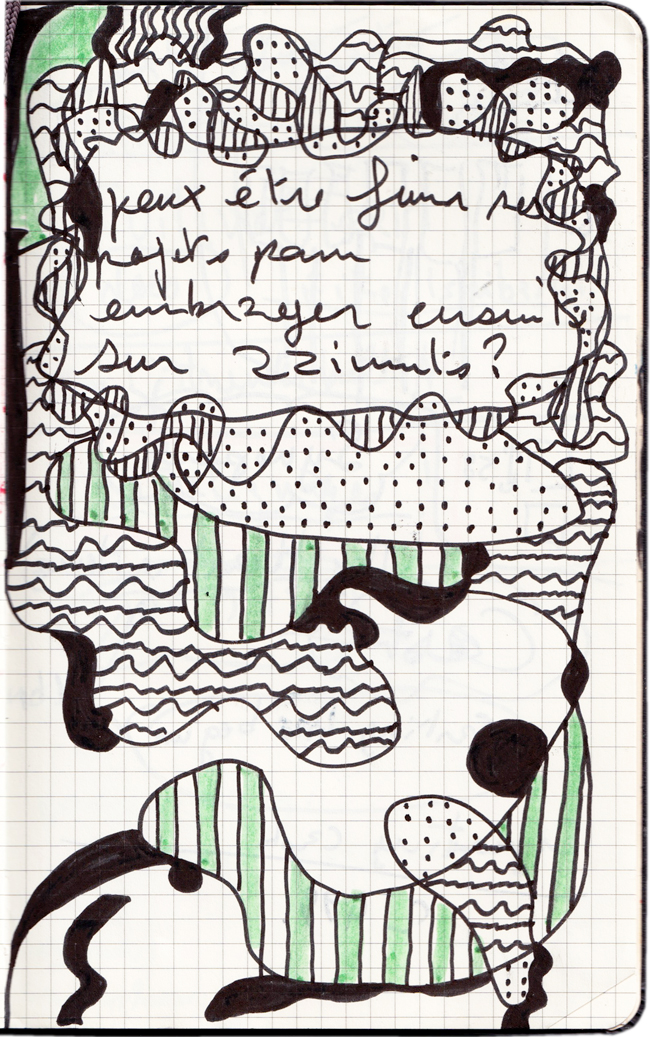 peux être finir ses
projets pour
embrayer ensuite
sur